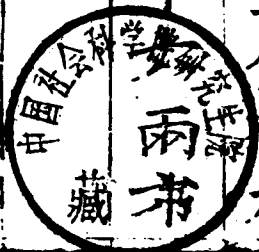 中国社会科学院研究生院
藏